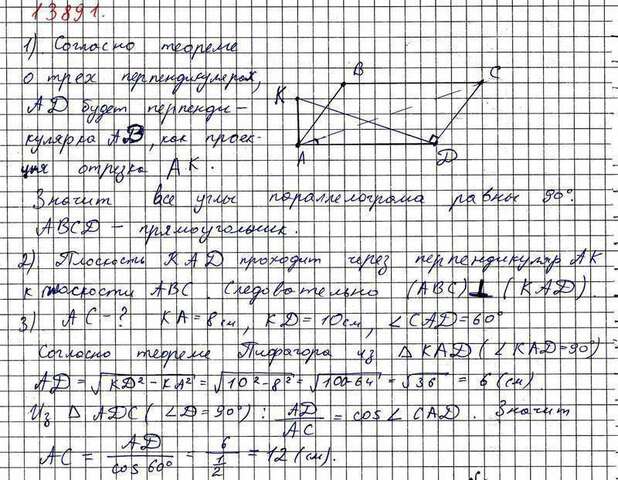 13891.
1) Согласно теореме
о трех перпендикулярах,
AD будет перпенди-
кулярна AB, как проек-
ция отрезка AK.
Значит все углы параллелограма равны 90°.
ABCD - прямоугольник.
2) Плоскость KAD проходит через перпендикуляр AK
к плоскости ABC. Следовательно (ABC) ⊥ (KAD).
3) AC - ? KA = 8 см, KD = 10 см, ∠CAD = 60°
Согласно теореме Пифагора из △KAD (∠KAD = 90°)
AD = √KD² - KA² = √10² - 8² = √100 - 64 = √36 = 6 (см)
Из △ADC (∠D = 90°) : AD/AC = cos∠CAD. Значит
AC = AD/cos 60° = 6/(1/2) = 12 (см).
K
B
C
A
D